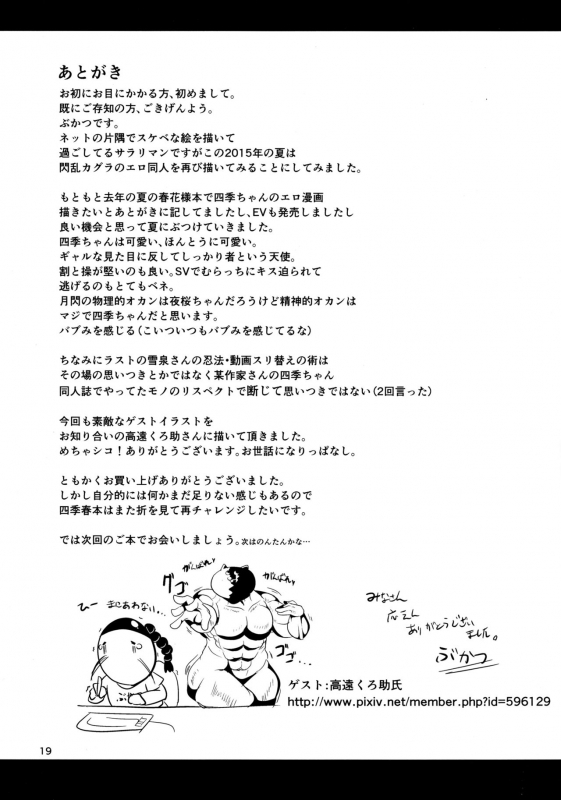 あとがき
お初にお目にかかる方、初めまして。
既にご存知の方、ごきげんよう。
ぶかつです。
ネットの片隅でスケベな絵を描いて
過ごしてるサラリマンですがこの2015年の夏は
閃乱カグラのエロ同人を再び描いてみることにしてみました。
もともと去年の夏の春花様本で四季ちゃんのエロ漫画
描きたいとあとがきに記してましたし、EVも発売しましたし
良い機会と思って夏にぶつけていきました。
四季ちゃんは可愛い、ほんとうに可愛い。
ギャルな見た目に反してしっかり者という天使。
割と操が堅いのも良い。SVでむらっちにキス迫られて
逃げるのもとてもベネ。
月閃の物理的オカンは夜桜ちゃんだろうけど精神的オカンは
マジで四季ちゃんだと思います。
バブみを感じる(こいついつもバブみを感じてるな)
ちなみにラストの雪泉さんの忍法・動画スリ替えの術は
その場の思いつきとかではなく某作家さんの四季ちゃん
同人誌でやってたモノのリスペクトで断じて思いつきではない(2回言った)
今回も素敵なゲストイラストを
お知り合いの高遠くろ助さんに描いて頂きました。
めちゃシコ！ありがとうございます。お世話になりっぱなし。
ともかくお買い上げありがとうございました。
しかし自分的には何かまだ足りない感じもあるので
四季春本はまた折を見て再チャレンジしたいです。
では次回のご本でお会いしましょう。次はのんたんかな…
がんばれ♥
がんばれ♥
グゴゴ
ひー
まにあわない…
ゴゴ…
みなさん
応援
ありがとうござい
ました。
ぶかつ
ゲスト:高遠くろ助氏
http://www.pixiv.net/member.php?id=596129
19